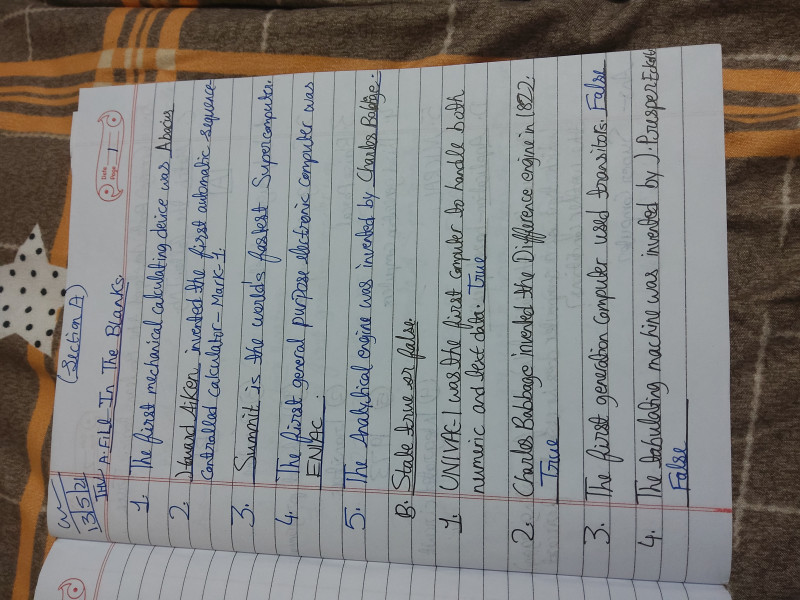 Date
Page 1
C.W
13/5/21
(Section A)
THU A. Fill In The Blanks.
1. The first mechanical calculating device was Abacus
2. Howard Aiken invented the first automatic sequence
controlled calculator - Mark-1.
3. Summit is the world's fastest Supercomputer.
4. The first general purpose electronic computer was
ENIAC.
5. The Analytical engine was invented by Charles Babbage.
B. State true or false.
1. UNIVAC-1 was the first computer to handle both
numeric and text data. True
2. Charles Babbage invented the Difference engine in 1822.
True
3. The first generation computer used transitors. False
4. The tabulating machine was invented by J. Presper Eckert
False